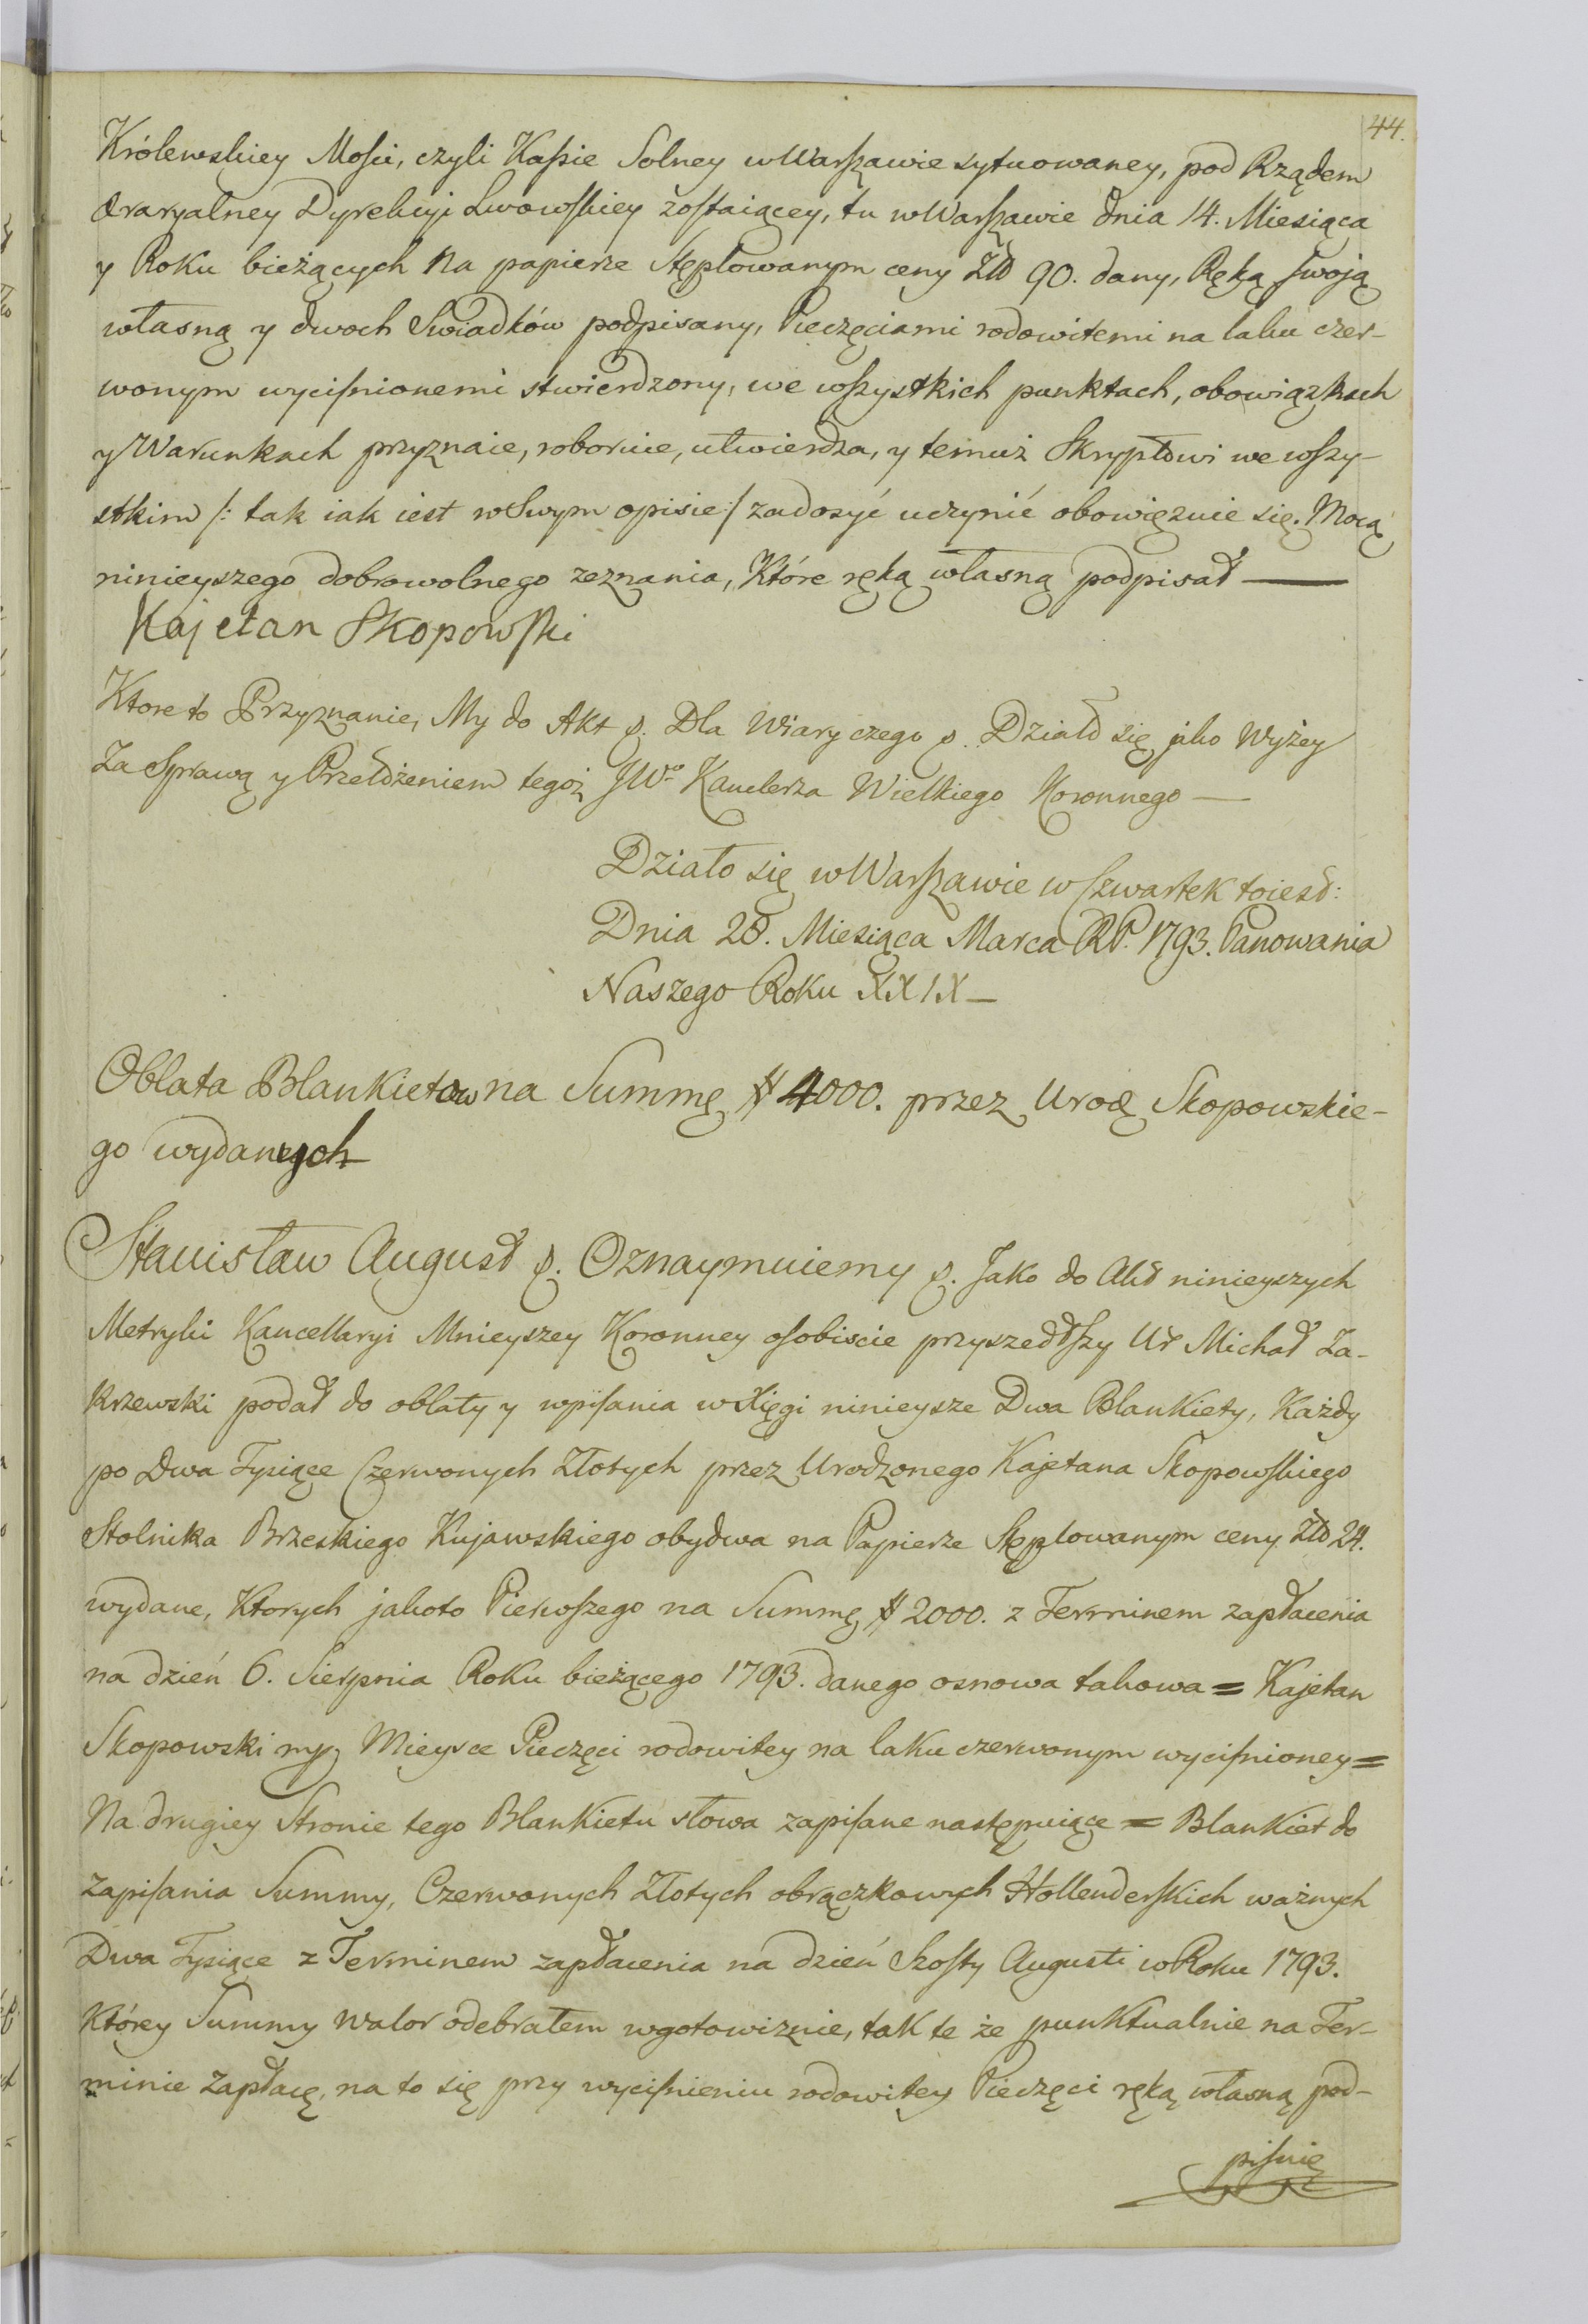 44.
Królewskiey Mości, czyli Kaſsie Solney w Warſzawie sytuowaney, pod Rządem
Æraryalney Dyrekcyi Lwowſkiey zoſtaiącey, tu w Warſzawie dnia 14. Miesiąca
y Roku bieżących na papierze stęplowanym ceny Złł 90. dany, Ręką ſwoją
własną y dwoch Swiadków podpisany, Pieczęciami rodowitemi na laku czer-
wonym wyciſnionemi stwierdzony, we wſzystkich punktach, obowiązkach
y Warunkach przyznaie, roboruie, utwierdza, y temuż Skryptowi we wſzy-
stkim /: tak iak iest w Swym opisie :/ zadosyć uczynić obowięzuie się. Mocą
ninieyszego dobrowolnego zeznania, Które ręką własną podpisał —
Kajetan Skopowſki
Ktore to Przyznanie, My do Akt p. Dla Wiary czego p. Działo się jako Wyżey
Za Sprawą y Przełożeniem tegoż JWo Kanclerza Wielkiego Koronnego —
Działo się w Warſzawie w Czwartek toiest:
Dnia 28. Miesiąca Marca RP. 1793. Panowania
Naszego Roku XXIX —
Oblata Blankietow na Summę # 4000. przez Urog Skopowskie-
go wydanych
Stanisław August p. Oznaymuiemy p. Jako do Akt ninieyszych
Metryki Kancellaryi Mnieyszey Koronney oſobiscie przyszedłſzy Ur Michał Za-
krzewski podał do oblaty y wpiſania w Xięgi ninieysze Dwa Blankiety, Każdy
po Dwa Tysiące Czerwonych Złotych przez Urodzonego Kajetana Skopowſkiego
Stolnika Brzeskiego Kujawskiego obydwa na Papierze Stęplowanym ceny Złł 24.
wydane, Ktorych jakoto Pierwſzego na Summę # 2000. z Terminem zapłacenia
na dzień 6. Sierpnia Roku bieżącego 1793. danego osnowa takowa = Kajetan
Skopowski mp Mieysce Pieczęci rodowitey na laku czerwonym wyciſnioney =
Na drugiey Stronie tego Blankietu słowa zapiſane następuiące = Blankiet do
zapiſania Summy, Czerwonych Złotych obrączkowych Hollenderſkich ważnych
Dwa Tysiące z Terminem zapłacenia na dzień Szoſty Augusti w Roku 1793.
Którey Summy walor odebrałem w gotowiznie, tak te że punktualnie na Ter-
minie zapłacę, na to się przy wyciſnieniu rodowitey Pieczęci ręką własną pod-
piſuię